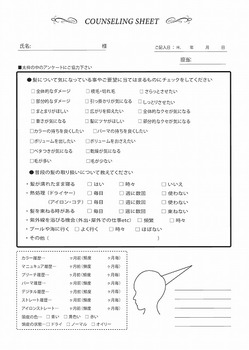 COUNSELING SHEET
氏名: 様 ご記入日:H. 年 月 日
担当:
■太枠の中のアンケートにご協力下さい
●髪について気になっている事やご要望に当てはまるものにチェックをしてください
□全体的なダメージ □枝毛・切れ毛 □さらっとさせたい
□部分的なダメージ □引っ掛かりが気になる □しっとりさせたい
□まとまりが悪い □広がりを抑えたい □全体的なクセが気になる
□艶が欲しい □髪にツヤがほしい □部分的なクセが気になる
□カラーの持ちを良くしたい □パーマの持ちを良くしたい
□ボリュームを出したい □ボリュームをおさえたい
□ベタつきが気になる □乾燥が気になる
□毛が多い □毛が少ない
●普段の髪の取り扱いについて教えてください
・髪が濡れたまま寝る □はい □時々 □いいえ
・熱処理(ドライヤー) □毎日 □週に数回 □使わない
(アイロン・コテ) □毎日 □週に数回 □使わない
・髪を束ねる時がある □毎日 □週に数回 □束ねない
・紫外線に当たる機会(外出・屋外での仕事etc) □頻繁 □時々
・プールや海に行く □よく行く □時々 □ほぼない
・その他( )
カラー履歴… ヶ月前(頻度 ヶ月毎)
マニキュア履歴… ヶ月前(頻度 ヶ月毎)
ブリーチ履歴… ヶ月前(頻度 ヶ月毎)
パーマ履歴… ヶ月前(頻度 ヶ月毎)
デジタル履歴… ヶ月前(頻度 ヶ月毎)
ストレート履歴… ヶ月前(頻度 ヶ月毎)
アイロンストレート… ヶ月前(頻度 ヶ月毎)
頭皮の色… □青い □黄色い □赤い
頭皮の状態… □ドライ □ノーマル □オイリー